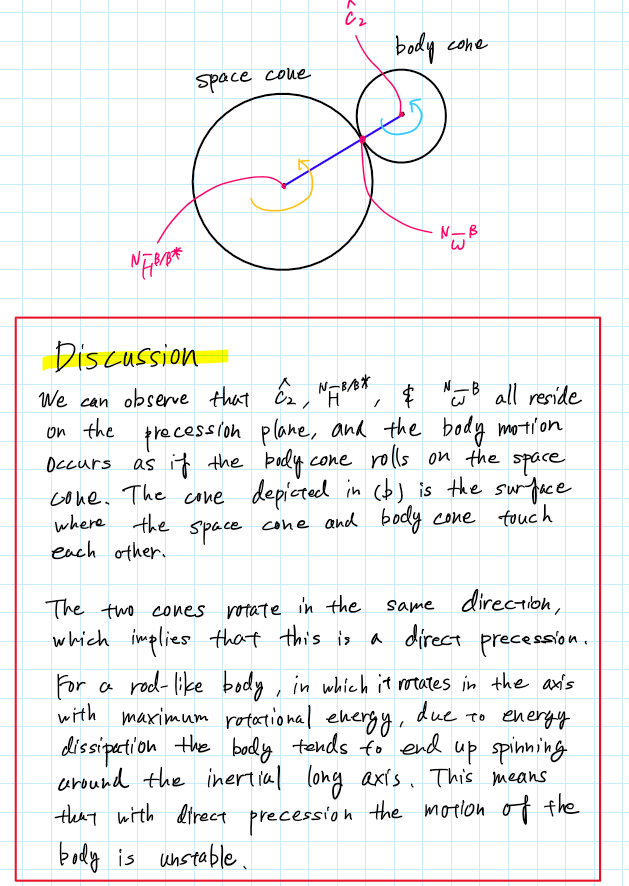 ĉ₂
body cone
space cone
ᴺω̄ᴮ
ᴺH̄ᴮ/ᴮ*
Discussion
We can observe that ĉ₂, ᴺH̄ᴮ/ᴮ*, & ᴺω̄ᴮ all reside
on the precession plane, and the body motion
occurs as if the body cone rolls on the space
cone. The cone depicted in (b) is the surface
where the space cone and body cone touch
each other.
The two cones rotate in the same direction,
which implies that this is a direct precession.
For a rod-like body, in which it rotates in the axis
with maximum rotational energy, due to energy
dissipation the body tends to end up spinning
around the inertial long axis. This means
that with direct precession the motion of the
body is unstable.